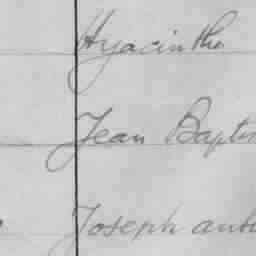 Hyacinthe
Jean Baptis
Joseph anto